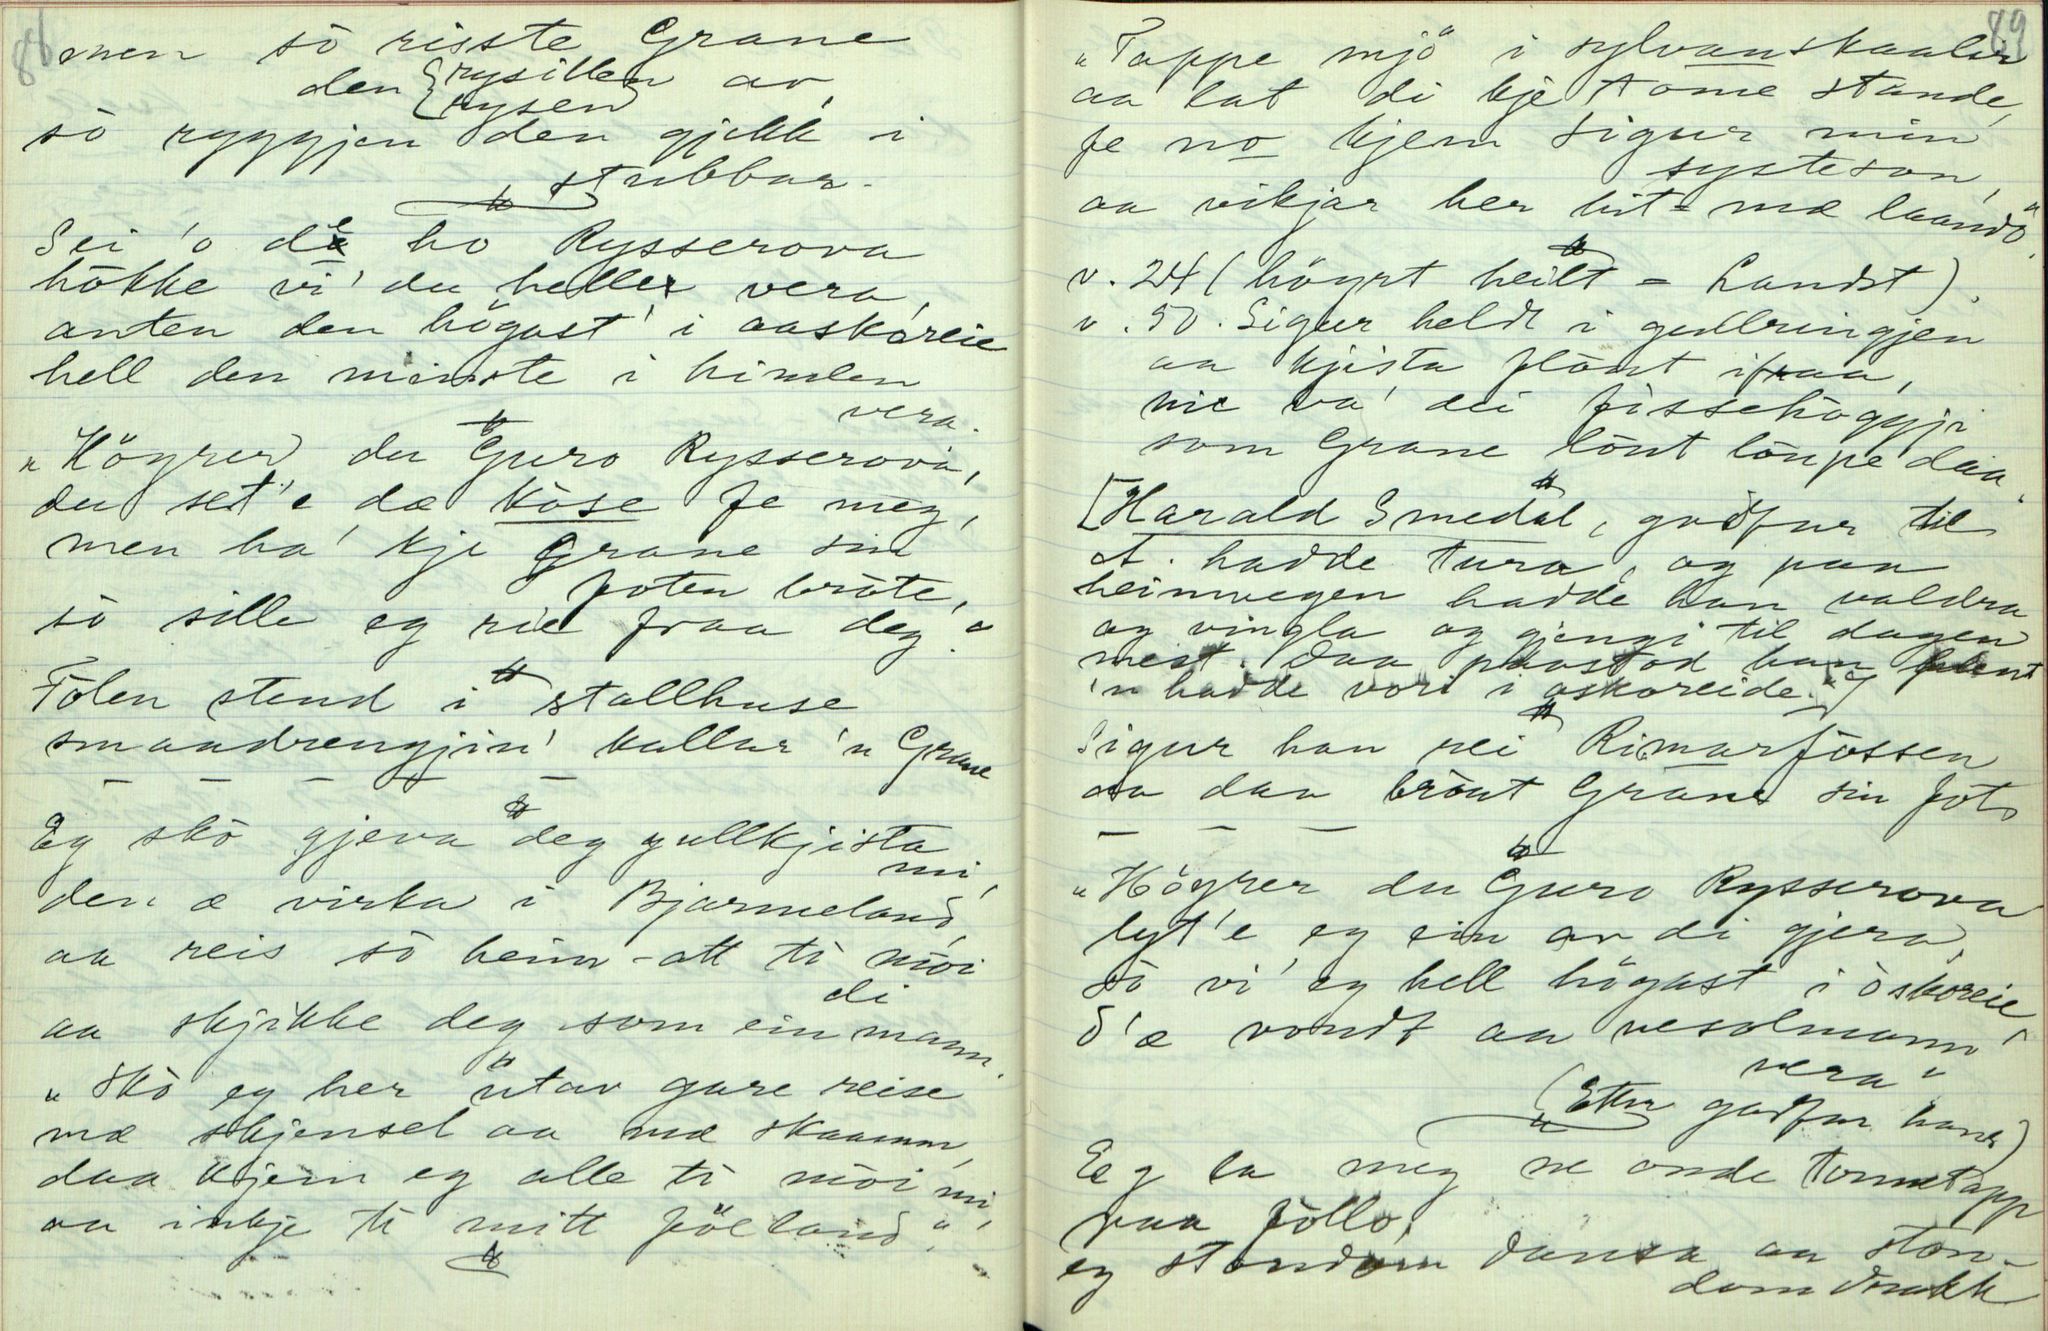 88
men sò risste Grane
den { rysillen av,
{ rysen
sò ryggjen den gjekk i
stubbar.
Sei 'o dæ ho Rysserova
hòkke vi' du heller vera,
anten den högast' i aaskòreie
hell den minste i himlen
vera.
"Höyrer du Guro Rysserova,
du set'e dæ kòse fe meg,
men ha' kje Grane sin
foten bròte,
sò sille eg rie fraa deg."
Folen stend i stallhuse
smaadrengjin' kallar 'n Grane
— — — — —
Eg skò gjeva deg gullkjista
mi,
den æ virka i Bjarmeland,
aa reis sò heim-att ti mòi
di
aa skjikke deg som ein mann.
"Skò eg her utav gare reise
mæ skjensel aa mæ skaamm,
daa kjem eg alle ti mòi mi,
aa inkje ti mitt föeland".
89
"Tappe mjö i sylvanskaalir
aa lat di kje tome stande,
fe no kjem Sigur min
systeson,
aa vikjar her hit mæ laandò".
v. 24 (höyrt heilt = Landst).
v. 50. Sigur heldt i gullringjen
aa kjista flaut ifraa,
nie va' dei fossehöggji
som Grane lònt löupe daa.
[Harald Smedal, godfar til
A. hadde tura, og paa
heimvegen hadde han valdra
og vingla og gjengi til dagen
mest. Daa paastod han
'n hadde vori i oskoreide.]
Sigur han rei Rimarfossen
aa daa bròut Grane sin fot
— — —
"Höyrer du Guro Rysserova
lyt'e eg ein av di gjera,
sò vi' eg hell högast i òskoreie,
d'æ vondt aa vesolmann
vera"
(Etter godfar hans)
Eg la meg ne onde tonnetapp
paa follo,
eg stondom dansa aa ston-
dom drakk